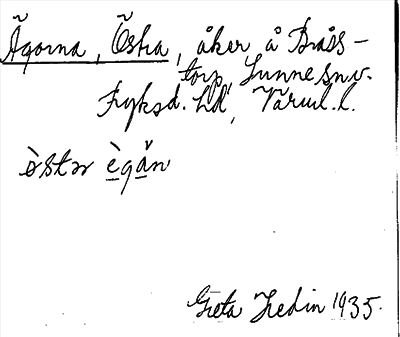 Ägorna, Östra, åker å Bråss-
torp, Sunne sn.
Fryksd. hd, Värml. l.
östər ègän
Greta Hedin 1935.